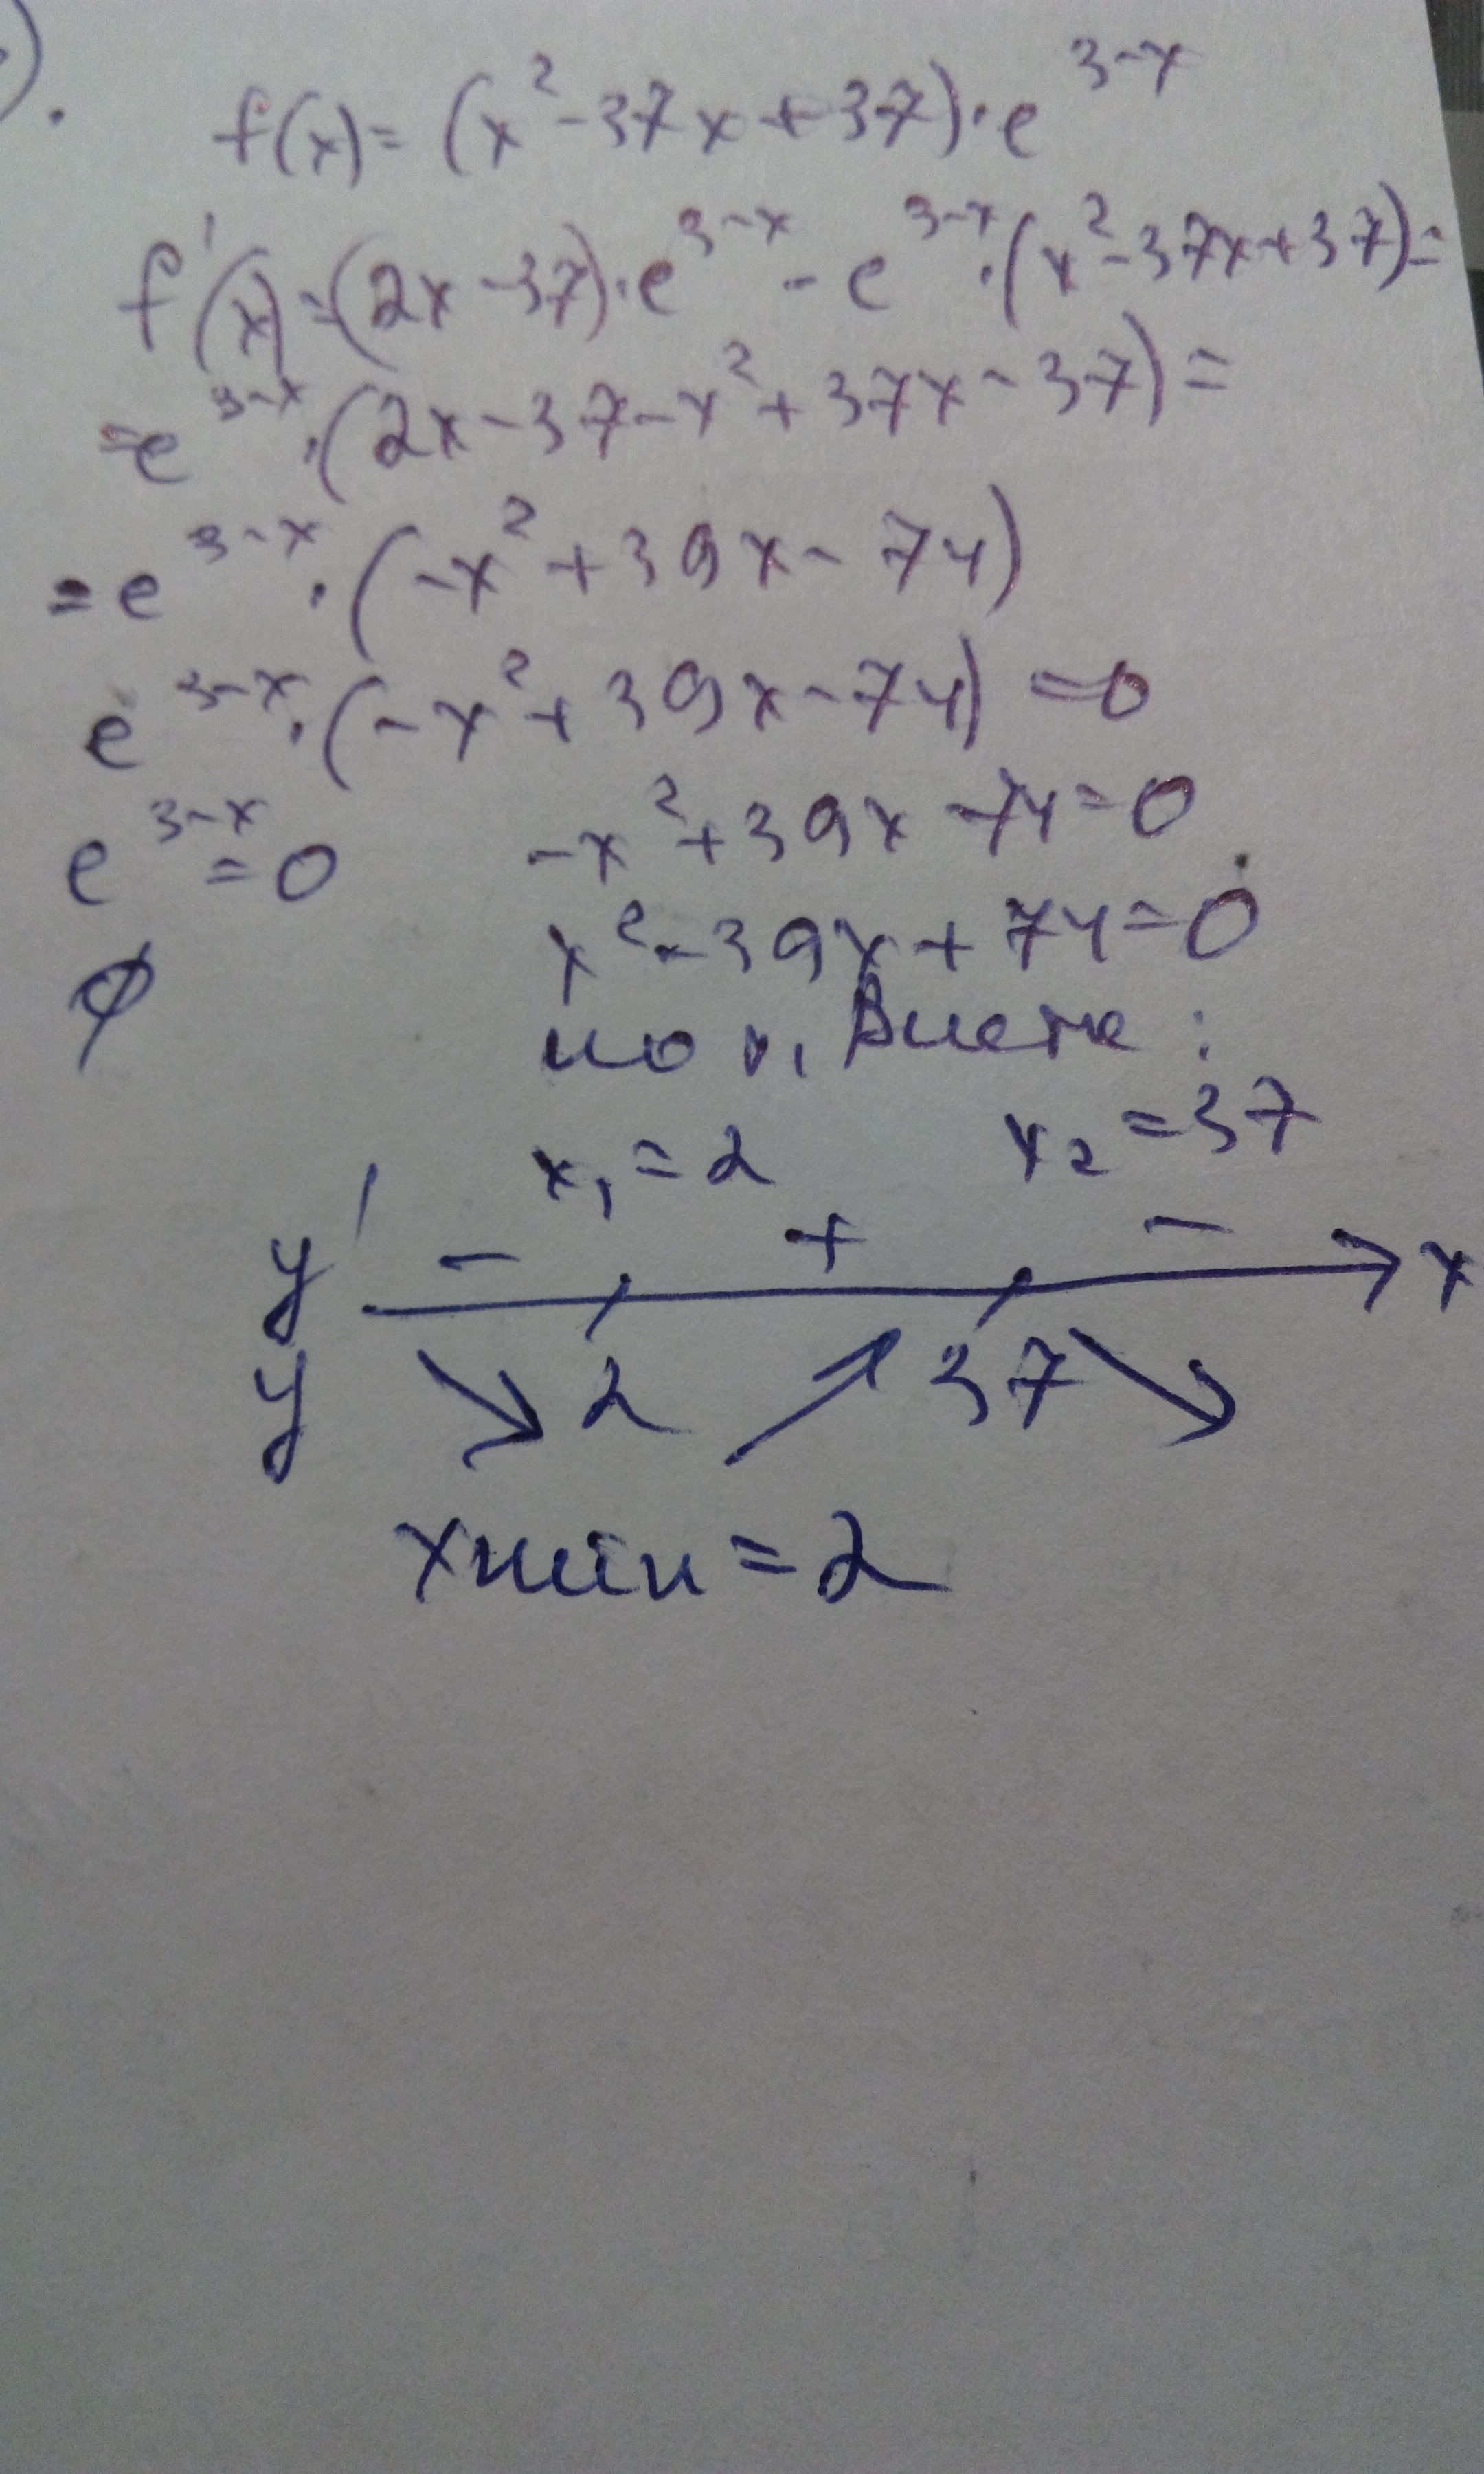 ).
f(x)=(x²-37x+37)·e^{3-x}
f'(x)=(2x-37)·e^{3-x}-e^{3-x}·(x²-37x+37)=
=e^{3-x}·(2x-37-x²+37x-37)=
=e^{3-x}·(-x²+39x-74)
e^{3-x}·(-x²+39x-74)=0
e^{3-x}=0 -x²+39x-74=0
∅ x²-39x+74=0
по т. Виета:
x₁=2 x₂=37
y' - + - x
y ↘ 2 ↗ 37 ↘
xmin=2